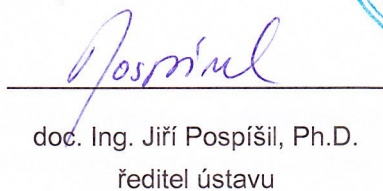 Pospíšil
doc. Ing. Jiří Pospíšil, Ph.D.
ředitel ústavu